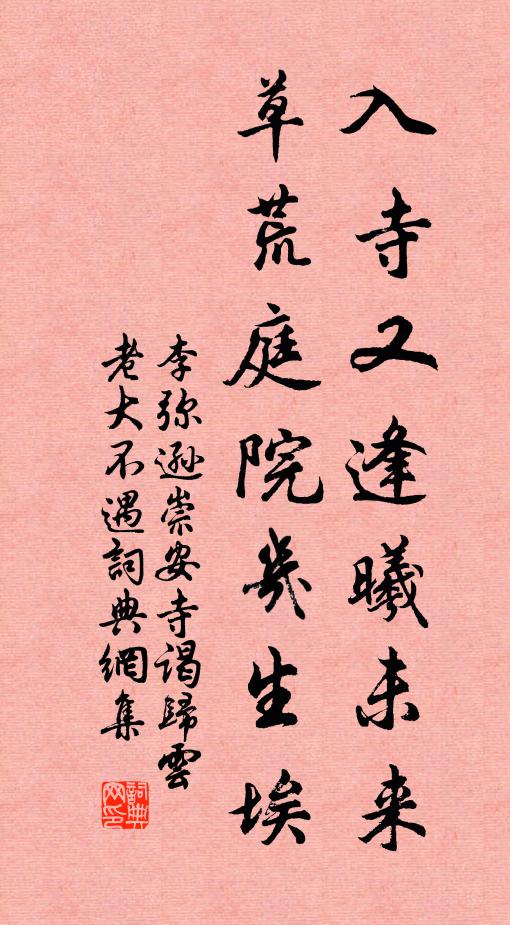 入寺又逢曦未来
草荒庭院几生埃
李弥逊崇安寺谒歸雲
老大不遇詞典網集
詞典网印